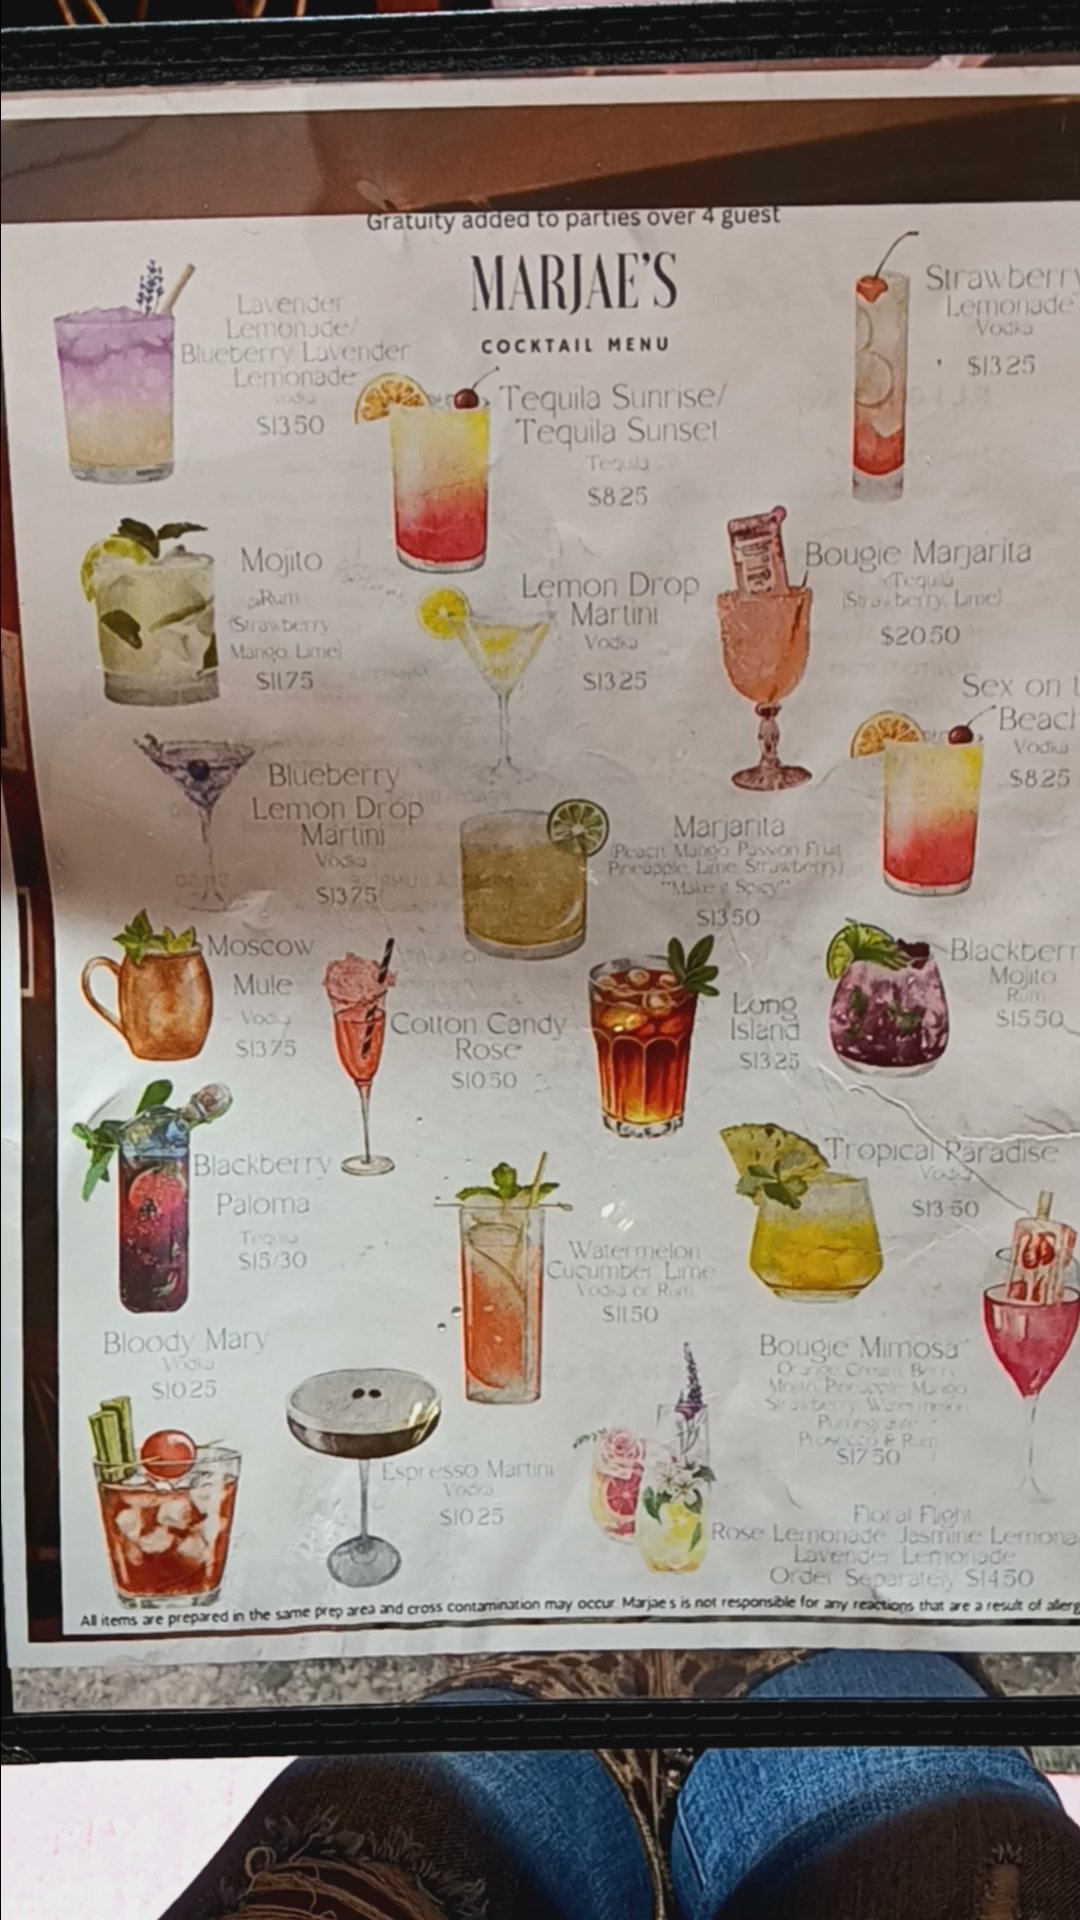 Gratuity added to parties over 4 guest
MARJAE'S
COCKTAIL MENU
Lavender
Lemonade/
Blueberry Lavender
Lemonade
Vodka
$13.50
Tequila Sunrise/
Tequila Sunset
Tequila
$8.25
Strawberry
Lemonade
Vodka
$13.25
Mojito
Rum
(Strawberry,
Mango, Lime)
$11.75
Lemon Drop
Martini
Vodka
$13.25
Bougie Marjarita
Tequila
(Strawberry, Lime)
$20.50
Sex on
Beach
Vodka
$8.25
Blueberry
Lemon Drop
Martini
Vodka
$13.75
Marjarita
(Peach, Mango, Passion Fruit,
Pineapple, Lime, Strawberry)
"Make it Spicy"
$13.50
Moscow
Mule
Vodka
$13.75
Cotton Candy
Rose
$10.50
Long
Island
$13.25
Blackberr
Mojito
Rum
$15.50
Blackberry
Paloma
Tequila
$15/30
Watermelon
Cucumber Lime
Vodka or Rum
$11.50
Tropical Paradise
Vodka
$13.50
Bloody Mary
Vodka
$10.25
Espresso Martini
Vodka
$10.25
Bougie Mimosa
Orange, Cream, Berry
Mojito, Pineapple, Mango
Strawberry, Watermelon
Pomegranate
Prosecco & Rum
$17.50
Floral Flight
Rose Lemonade Jasmine Lemona
Lavender Lemonade
Order Separately $14.50
All items are prepared in the same prep area and cross contamination may occur. Marjae's is not responsible for any reactions that are a result of allerg